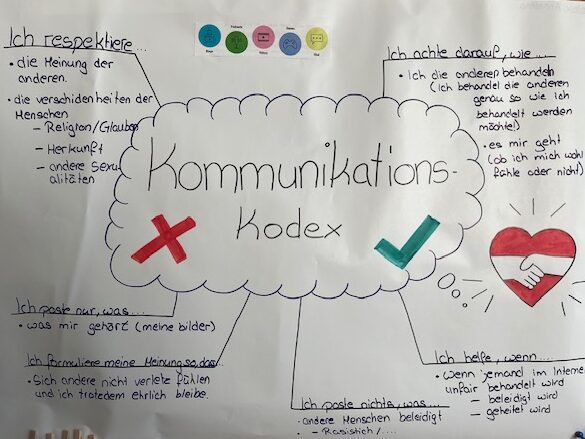 Ich respektiere...
• die Meinung der
anderen.
• die verschidenheiten der
Menschen
– Religion/Glauben
– Herkunft
– andere Sexu-
alitäten
Ich achte darauf, wie ....
• Ich die anderen behandeln
(Ich behandel die anderen
genau so wie ich
behandelt werden
möchte!)
• es mir geht
(ob ich mich wohl
fühle oder nicht)
Kommunikations-
Kodex
Ich poste nur, was...
• was mir gehört (meine bilder)
Ich formuliere meine Meinung so, das...
• Sich andere nicht verletz fühlen
und ich trotzdem ehrlich bleibe.
Ich poste nichts, was....
• andere Menschen beleidigt
– Rasistich/....
Ich helfe, wenn.....
• Wenn jemand im Interne
unfair behandelt wird
– beleidigt wird
– geheitet wird